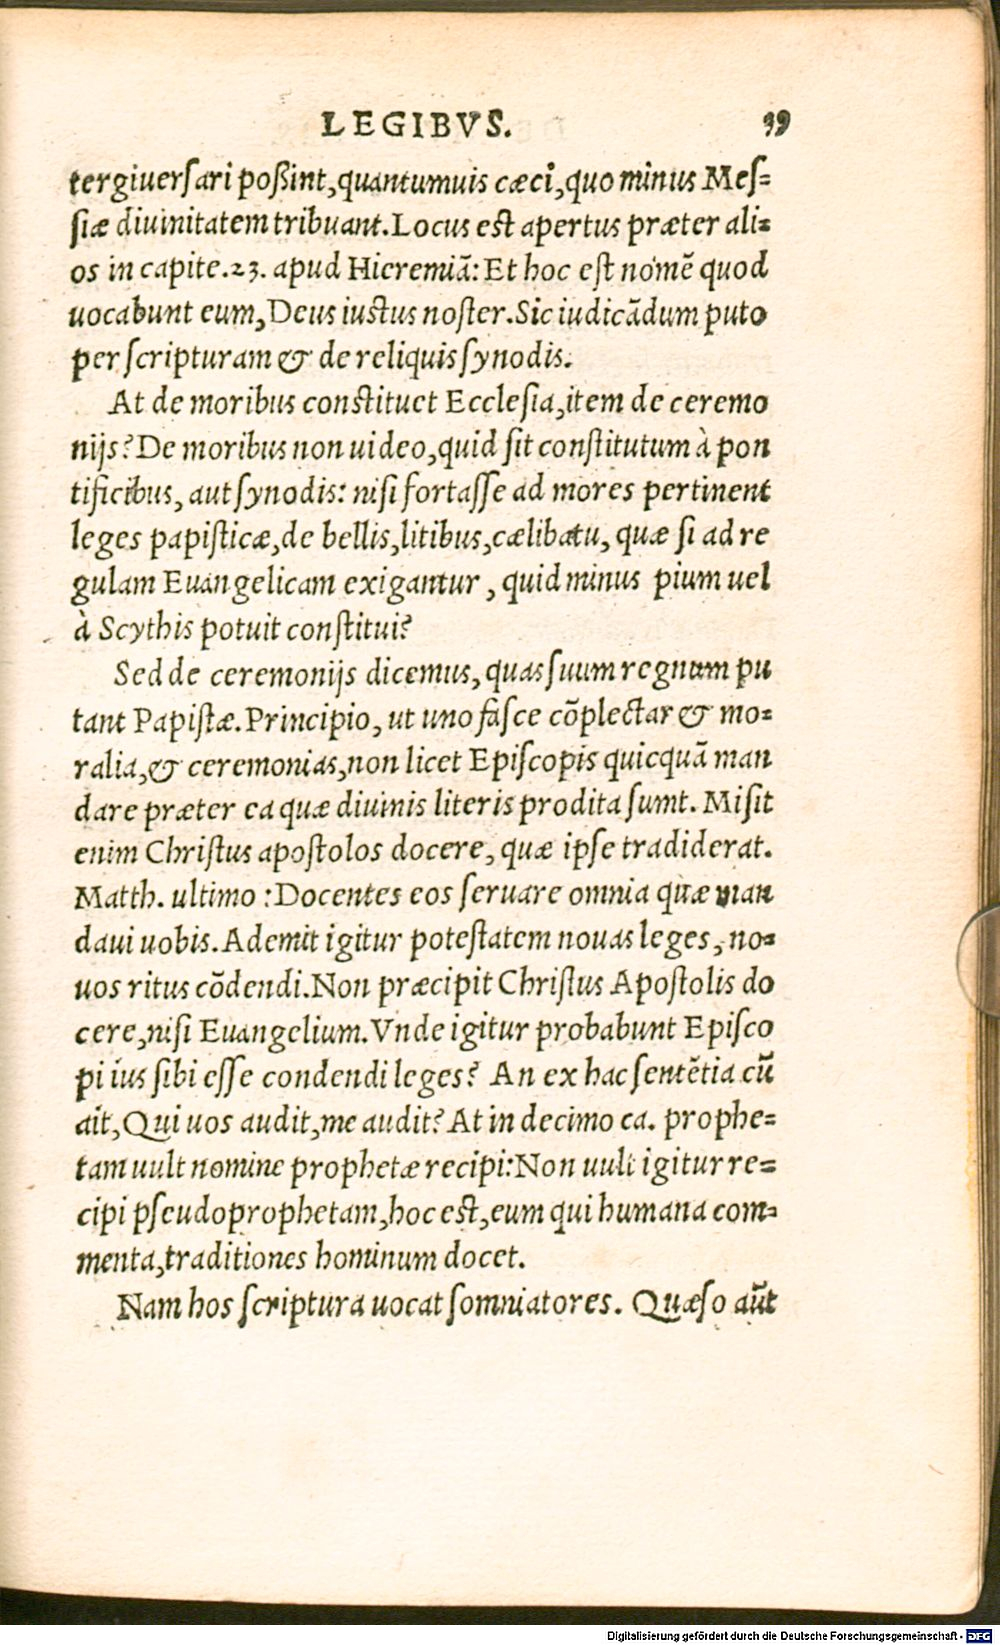 LEGIBVS. 39
tergiuersari poßint,quantumuis cæci,quo minus Mes=
siæ diuinitatem tribuant.Locus est apertus præter ali=
os in capite.23. apud Hieremiā: Et hoc est nomē quod
uocabunt eum,Deus iustus noster.Sic iudicādum puto
per scripturam & de reliquis synodis.
At de moribus constituet Ecclesia,item de ceremo
nijs? De moribus non uideo,quid sit constitutum à pon
tificibus, aut synodis: nisi fortasse ad mores pertinent
leges papisticæ,de bellis,litibus,cælibatu, quæ si ad re
gulam Euangelicam exigantur, quid minus pium uel
à Scythis potuit constitui?
Sed de ceremonijs dicemus, quas suum regnum pu
tant Papistæ.Principio, ut uno fasce cōplectar & mo=
ralia,& ceremonias,non licet Episcopis quicquā man
dare præter ea quæ diuinis literis prodita sunt. Misit
enim Christus apostolos docere, quæ ipse tradiderat.
Matth. ultimo :Docentes eos seruare omnia quæ man
daui uobis.Ademit igitur potestatem nouas leges, no=
uos ritus cōdendi.Non præcipit Christus Apostolis do
cere,nisi Euangelium.Vnde igitur probabunt Episco
pi ius sibi esse condendi leges? An ex hac sentētia cū
ait,Qui uos audit,me audit? At in decimo ca. prophe=
tam uult nomine prophetæ recipi:Non uult igitur re=
cipi pseudoprophetam,hoc est,eum qui humana com=
menta,traditiones hominum docet.
Nam hos scriptura uocat somniatores. Quæso aūt
Digitalisierung gefördert durch die Deutsche Forschungsgemeinschaft - DFG